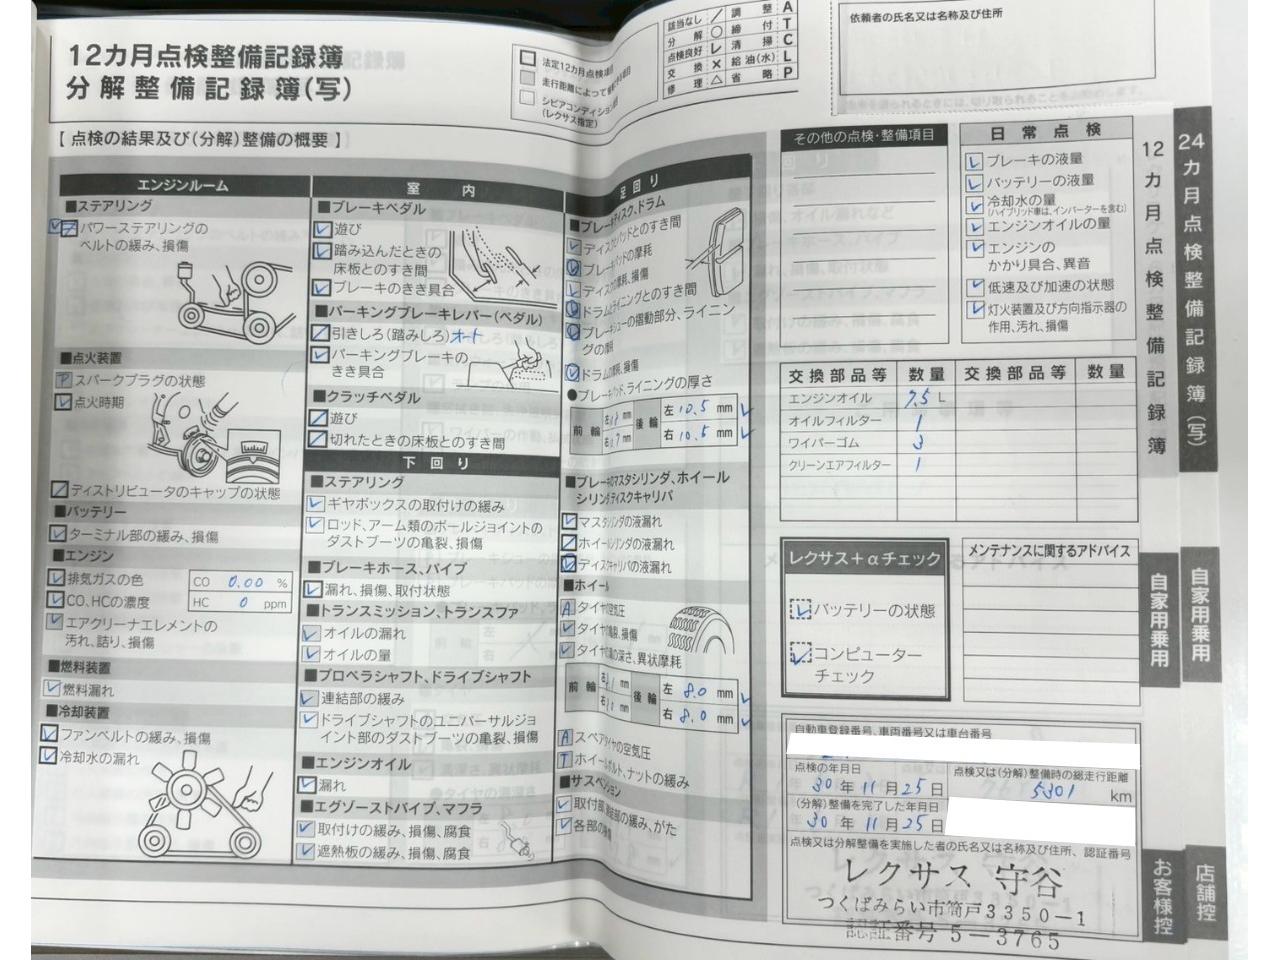 12カ月点検整備記録簿
分解整備記録簿(写)
法定12カ月点検項目
走行距離によって
シビアコンディション
(レクサス指定)
該当なし ／ 調整 A
分解 ○ 締付 T
点検良好 レ 清掃 C
交換 × 給油(水) L
修理 △ 省略 P
依頼者の氏名又は名称及び住所
【 点検の結果及び(分解)整備の概要 】
エンジンルーム
■ステアリング
パワーステアリングの
ベルトの緩み、損傷
■点火装置
P スパークプラグの状態
点火時期
ディストリビュータのキャップの状態
■バッテリー
ターミナル部の緩み、損傷
■エンジン
排気ガスの色
CO、HCの濃度
CO 0.00 %
HC 0 ppm
エアクリーナエレメントの
汚れ、詰り、損傷
■燃料装置
燃料漏れ
■冷却装置
ファンベルトの緩み、損傷
冷却水の漏れ
室内
■ブレーキペダル
遊び
踏み込んだときの
床板とのすき間
ブレーキのきき具合
■パーキングブレーキレバー(ペダル)
引きしろ(踏みしろ) オート
パーキングブレーキの
きき具合
■クラッチペダル
遊び
切れたときの床板とのすき間
下回り
■ステアリング
ギヤボックスの取付けの緩み
ロッド、アーム類のボールジョイントの
ダストブーツの亀裂、損傷
■ブレーキホース、パイプ
漏れ、損傷、取付状態
■トランスミッション、トランスファ
オイルの漏れ
オイルの量
■プロペラシャフト、ドライブシャフト
連結部の緩み
ドライブシャフトのユニバーサルジョ
イント部のダストブーツの亀裂、損傷
■エンジンオイル
漏れ
■エグゾーストパイプ、マフラ
取付けの緩み、損傷、腐食
遮熱板の緩み、損傷、腐食
足回り
■ブレーキディスク、ドラム
ディスクとパッドとのすき間
ブレーキパッドの摩耗
ディスクの摩耗、損傷
ドラムとライニングとのすき間
ブレーキシューの摺動部分、ライニン
グの摩耗
ドラムの摩耗、損傷
●ブレーキパッド、ライニングの厚さ
前輪 mm 後輪 左 10.5 mm
mm 右 10.5 mm
■ブレーキのマスタシリンダ、ホイール
シリンダ、ディスクキャリパ
マスタシリンダの液漏れ
ホイールシリンダの液漏れ
ディスクキャリパの液漏れ
■ホイール
A タイヤの空気圧
タイヤの亀裂、損傷
タイヤの溝の深さ、異状摩耗
前輪 mm 後輪 左 8.0 mm
mm 右 8.0 mm
A スペアタイヤの空気圧
T ホイールボルト、ナットの緩み
■サスペンション
取付部、連結部の緩み、がた
各部の損傷
その他の点検・整備項目
日常点検
ブレーキの液量
バッテリーの液量
冷却水の量
(ハイブリッド車は、インバーターを含む)
エンジンオイルの量
エンジンの
かかり具合、異音
低速及び加速の状態
灯火装置及び方向指示器の
作用、汚れ、損傷
交換部品等 数量 交換部品等 数量
エンジンオイル 7.5 L
オイルフィルター 1
ワイパーゴム 3
クリーンエアフィルター 1
レクサス+αチェック
バッテリーの状態
コンピューター
チェック
メンテナンスに関するアドバイス
自動車登録番号、車両番号又は車台番号
点検の年月日
30年11月25日
点検又は(分解)整備時の総走行距離
5301 km
(分解)整備を完了した年月日
30年11月25日
点検又は分解整備を実施した者の氏名又は名称及び住所、認証番号
レクサス 守谷
つくばみらい市筒戸3350-1
認証番号 5-3765
12カ月点検整備記録簿
自家用乗用
お客様控
24カ月点検整備記録簿(写)
自家用乗用
店舗控